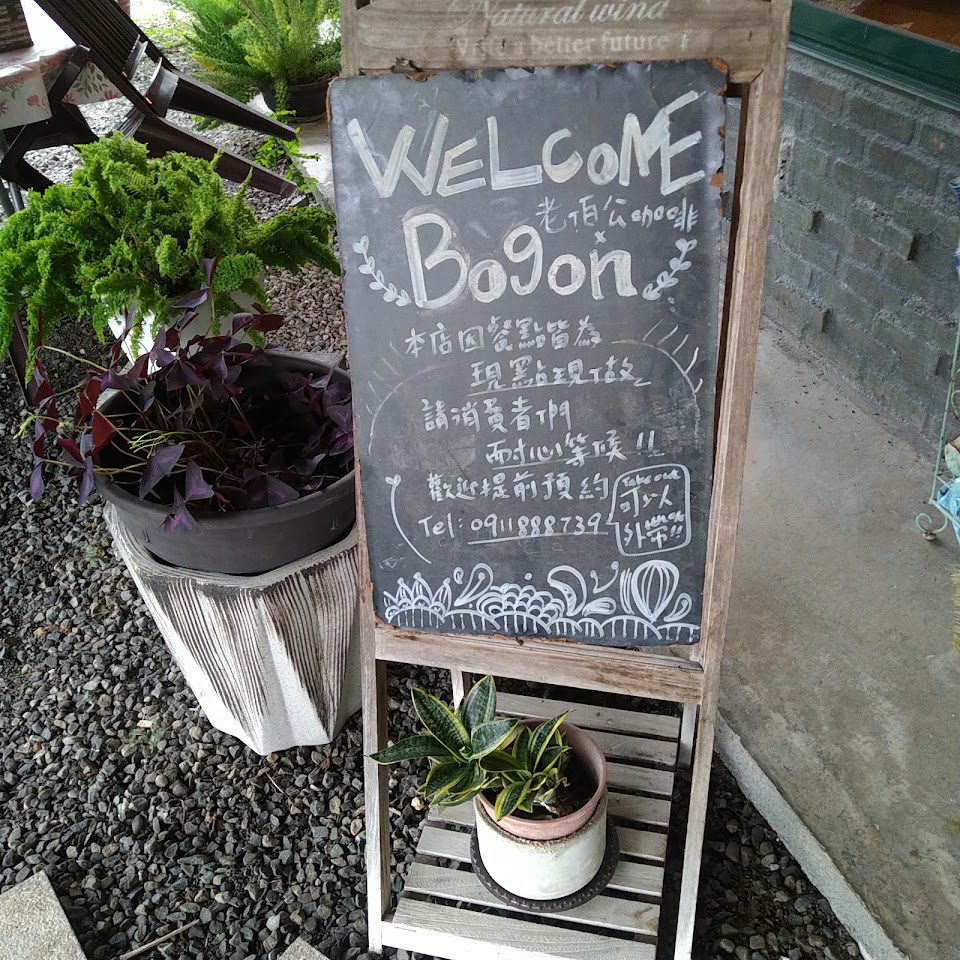 Natural wind
a better future
WELCOME
老伯公咖啡
×
Bogon
本店因餐點皆為
現點現做
請消費者們
耐心等候!!
歡迎提前預約
Tel: 0911888739
Take out
可以
外帶!!